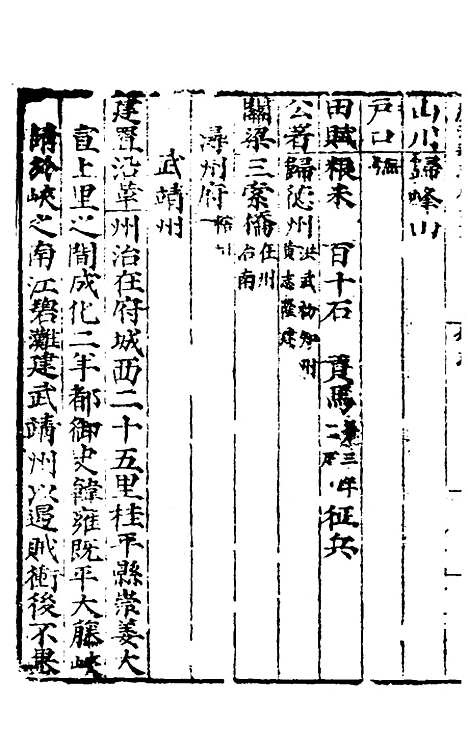 山川歸峰山
戶口
田賦粮米 百十石 貢馬 三年 征兵
公署歸德州洪武初知州黃志隆建
關梁三索橋在州治南
潯州府
武靖州
建置沿革州治在府城西二十五里桂平縣崇姜大
宣上里之間成化二年都御史韓雍既平大藤峽
請於峽之南江碧灘建武靖州以遏賊衝後不果